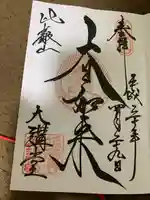 奉拝
平成二十年
四月二十九日
大日如来
比叡山
大講堂